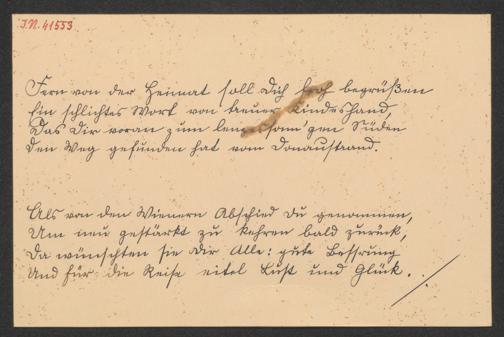 I.N. 41553
Fern von der Heimat soll Dich froh begrüßen
Ein schlichtes Wort von treuer Kindeshand,
Das Dir voran zum gen Süden
Den Weg gefunden hat vom Donaustrand.
Als von den Wienern Abschied Du genommen,
Um neu gestärkt zu kehren bald zurück,
Da wünschten sie Dir Alle: gute Besserung
Und für die Reise eitel Lust und Glück.